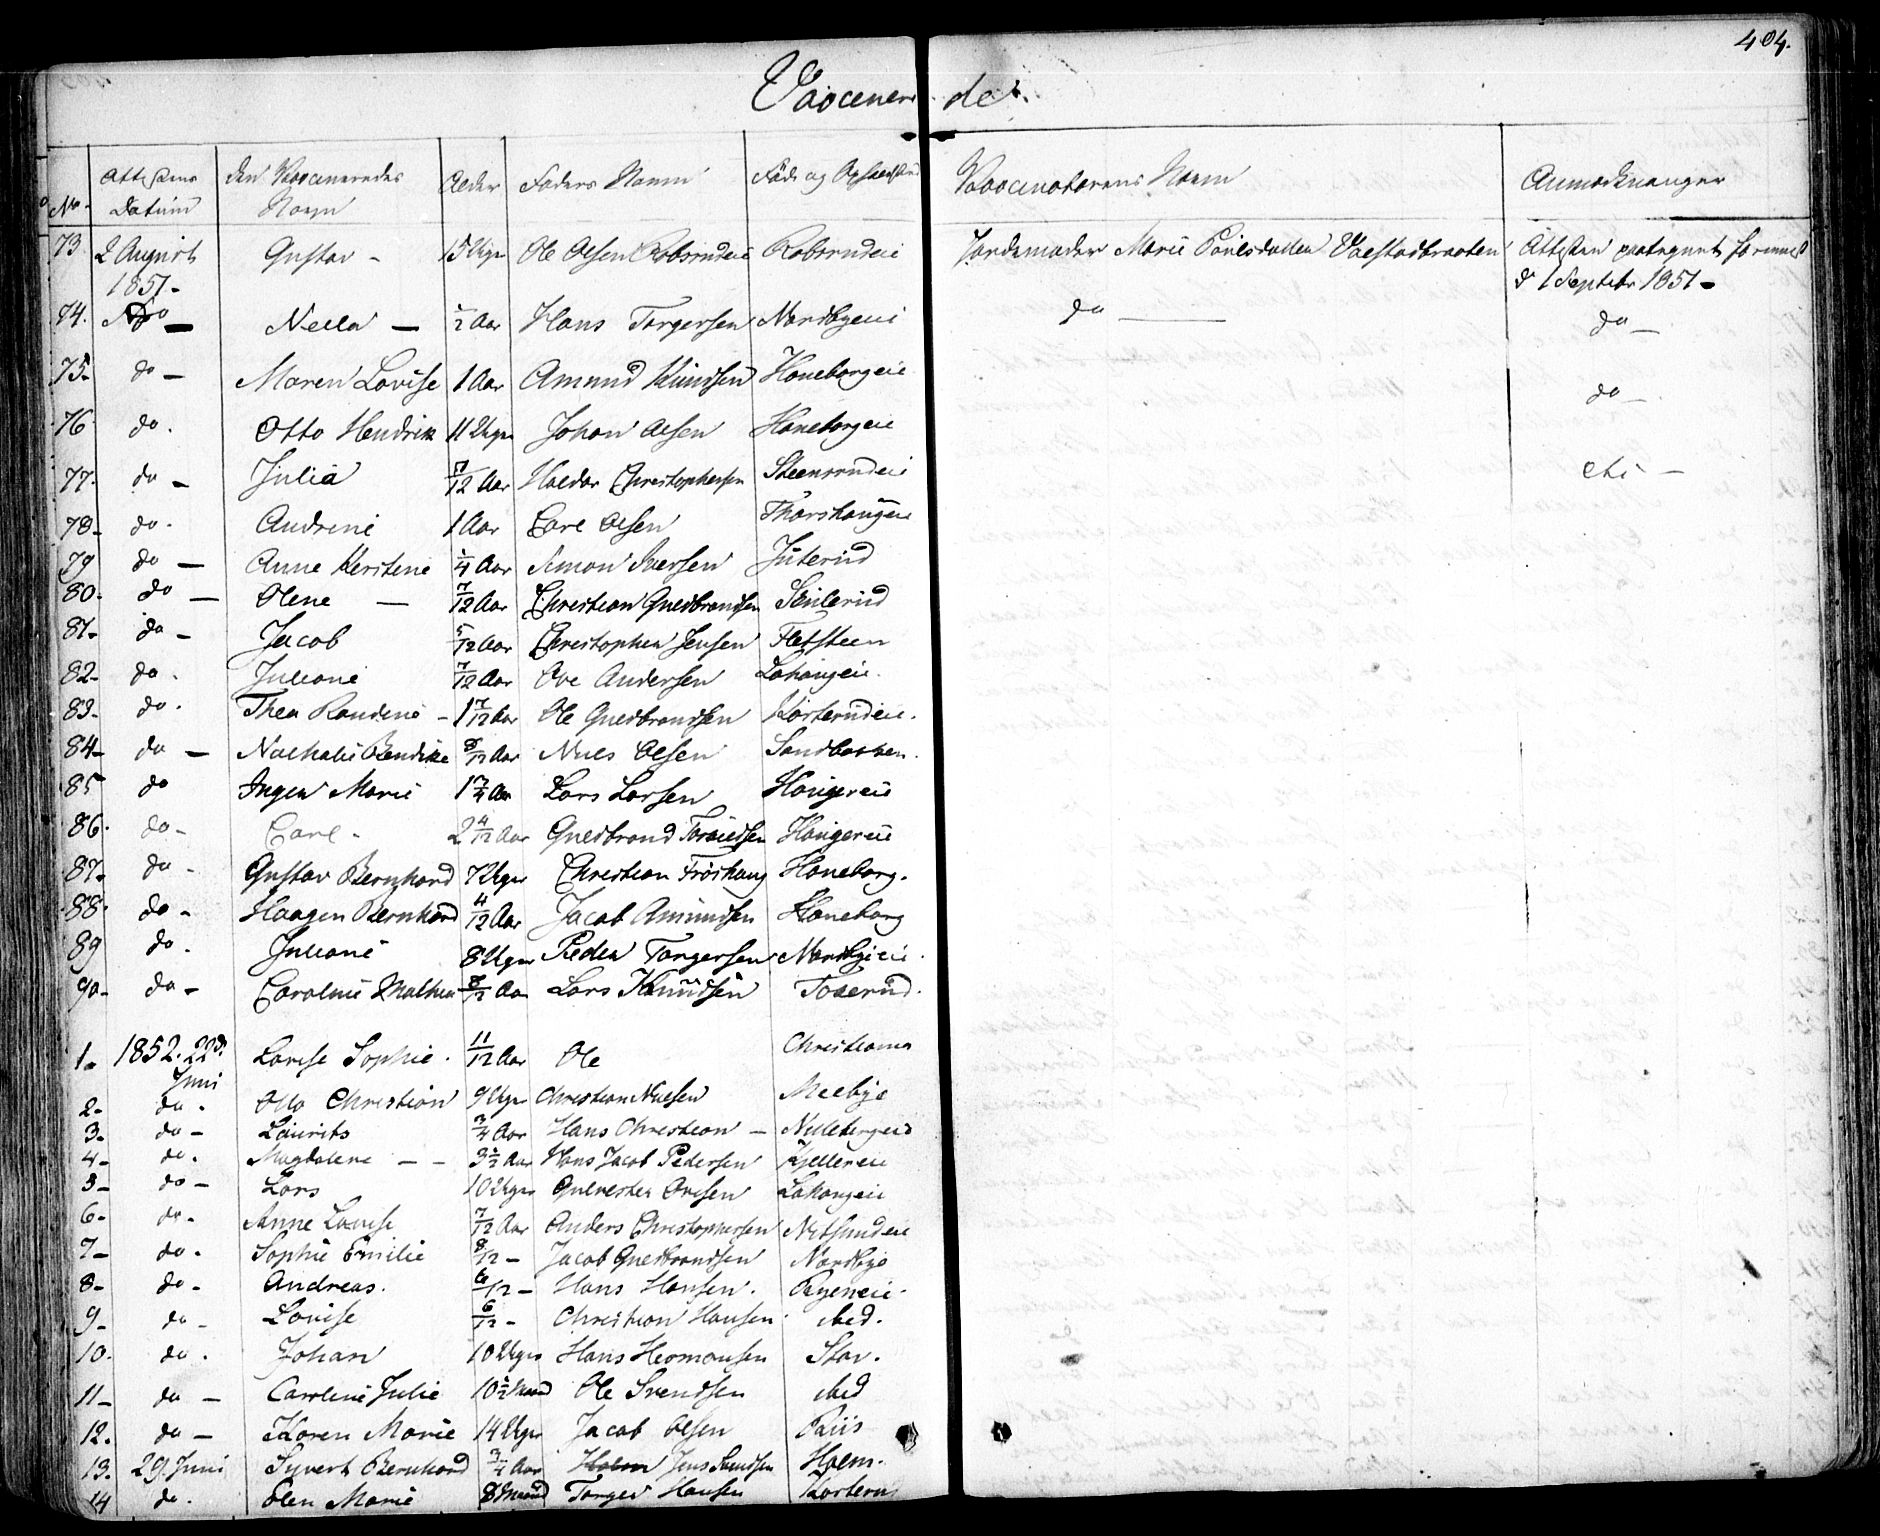 404.
Vaccenerede.
No. Attestens Datum den Vaccineredes Navn Alder Faders Navn Føde og Opholdsted Vaccinatorens Navn Anmærkninger
73. 2 August 1851. Gustav - 15 Uger Ole Olsen Robsrudeie Robsrudeie Jordemoder Marie Povlsdatter Attesten paategnet
d 1 Septebr 1851 -
74. Do - Nella - 1/2 Aar Hans Torgersen Nordbyeie do - do -
75. do - Maren Lovise 1 Aar Amund Knudsen Haneborgeie do -
76 do. Otto Hendrik 11 Uger Johan Olsen Haneborgeie
77. do - Julia 7/12 Aar Haldor Christophersen Steensrudeie do -
78. do. Andrine 1 Aar Carl Olsen Thorshaugeie
79 do - Anne Kerstine 1/4 Aar Simon Iversen Juterud
80. do - Olene - 7/12 Aar Christian Guldbrandsen Skulerud
81. do - Jacob 5/12 Aar Christopher Jensen Fletsteen
82. do. Juliane 7/12 Aar Ove Andersen Lahaugeie.
83. do. Thea Randine - 1 7/12 Aar Ole Guldbrandsen Kørterudeie.
84. do - Nathalie Bendikte 8/12 Aar Niels Olsen Sandbakken.
85 do Inger Marie 1 3/4 Aar Lars Larsen Haugereie
86. do - Carl - 2 4/12 Aar Guldbrand Haugereie
87. do - Gustav Bernhard 7 Uger Christian Frøshaug Haneborg.
88. do - Haagen Bernhard 4/12 Aar Jacob Amundsen Haneborg
89 do. Juliane 8 Uger Peder Torgersen Nordbyeie.
90. do - Caroline Mathea 8/12 Aar Lars Knudsen Toverud.
1. 1852. 22d. Juni Lovise Sophie. 11/12 Aar Ole Christiania
2. do. Otto Christian 9 Uger Christian Nielsen Meelbye
3. do - Laurits 3/4 Aar Hans Christian -
4. do. Magdalene - - 3 1/2 Aar Hans Jacob Pedersen Kjellereie
5. do - Lars 10 Uger Ovesen Lahaugeie
6. do. Anne Lovise 7/12 Aar Anders Christophersen Nitsundeie
7. do. Sophie Emilie 8/12 - Jacob Guldbrandsen Nordbye
8. do. Andreas. 6/12 - Hans Hansen. Ryeneie.
9. do - Lovise 6/12 - Christian Hansen. ibid.
10. do. Johan 10 Uger Hans Hermansen Stav.
11. do - Caroline Julie 10 1/2 Maand Ole Svendsen ibid
12. do - Karen Marie 14 Uger Jacob Olsen Riis
13. 29 Juni Syvert Bernhard 3/4 Aar Holm Jens Holm.
14 do. Elen Marie 8 Maaned Torger Hansen Kørterud